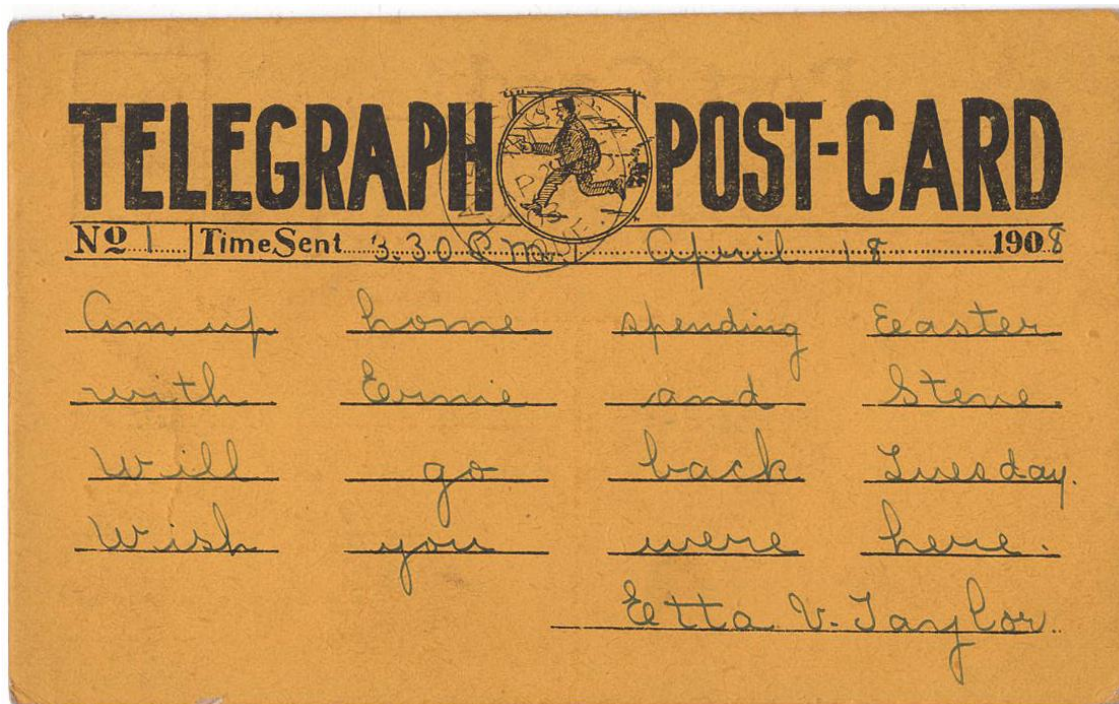 TELEGRAPH POST-CARD
No 1 Time Sent 3.30 P.M. April 18 1908
Am up home spending Easter
with Ernie and Steve.
Will go back Tuesday.
Wish you were here.
Etta V. Taylor.